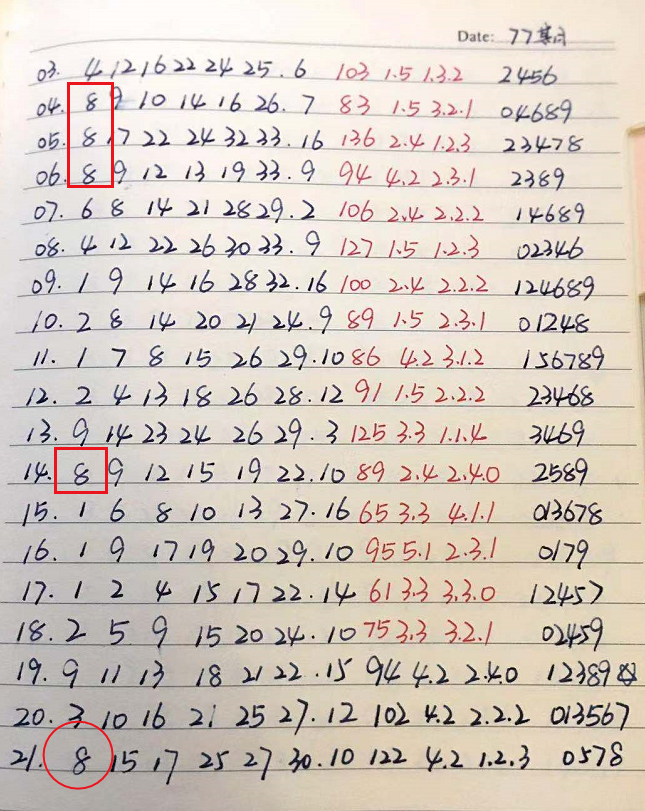 Date: 77期
03. 4 12 16 22 24 25 . 6 103 1.5 1.3.2 2456
04. 8 9 10 14 16 26 . 7 83 1.5 3.2.1 04689
05. 8 17 22 24 32 33 . 16 136 2.4 1.2.3 23478
06. 8 9 12 13 19 33 . 9 94 4.2 2.3.1 2389
07. 6 8 14 21 28 29 . 2 106 2.4 2.2.2 14689
08. 4 12 22 26 30 33 . 9 127 1.5 1.2.3 02346
09. 1 9 14 16 28 32 . 16 100 2.4 2.2.2 124689
10. 2 8 14 20 21 24 . 9 89 1.5 2.3.1 01248
11. 1 7 8 15 26 29 . 10 86 4.2 3.1.2 156789
12. 2 4 13 18 26 28 . 12 91 1.5 2.2.2 23468
13. 9 14 23 24 26 29 . 3 125 3.3 1.1.4 3469
14. 8 9 12 15 19 22 . 10 89 2.4 2.4.0 2589
15. 1 6 8 10 13 27 . 16 65 3.3 4.1.1 013678
16. 1 9 17 19 20 29 . 10 95 5.1 2.3.1 0179
17. 1 2 4 15 17 22 . 14 61 3.3 3.3.0 12457
18. 2 5 9 15 20 24 . 10 75 3.3 3.2.1 02459
19. 9 11 13 18 21 22 . 15 94 4.2 2.4.0 12389
20. 3 10 16 21 25 27 . 12 102 4.2 2.2.2 013567
21. 8 15 17 25 27 30 . 10 122 4.2 1.2.3 0578